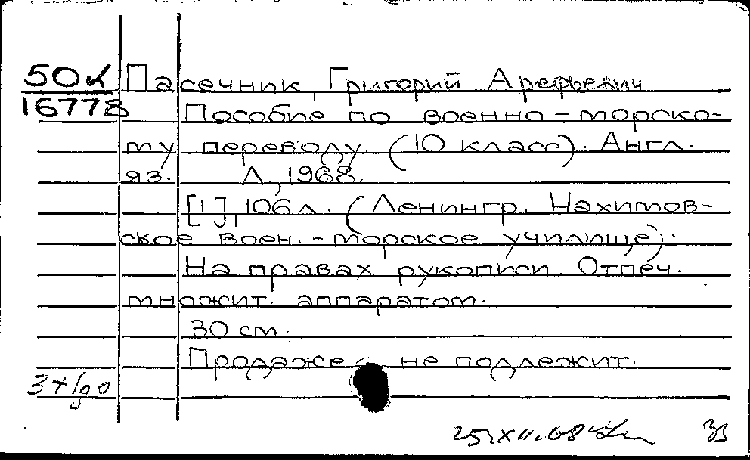 50К Пасечник, Григорий Арефьевич
16778 Пособие по военно-морско-
му переводу. (10 класс). Англ.
яз. Л., 1968.
[1], 106 л. (Ленингр. Нахимов-
ское воен.-морское училище).
На правах рукописи. Отпеч.
множит. аппаратом.
30 см.
Продаже не подлежит.
25.XII.68